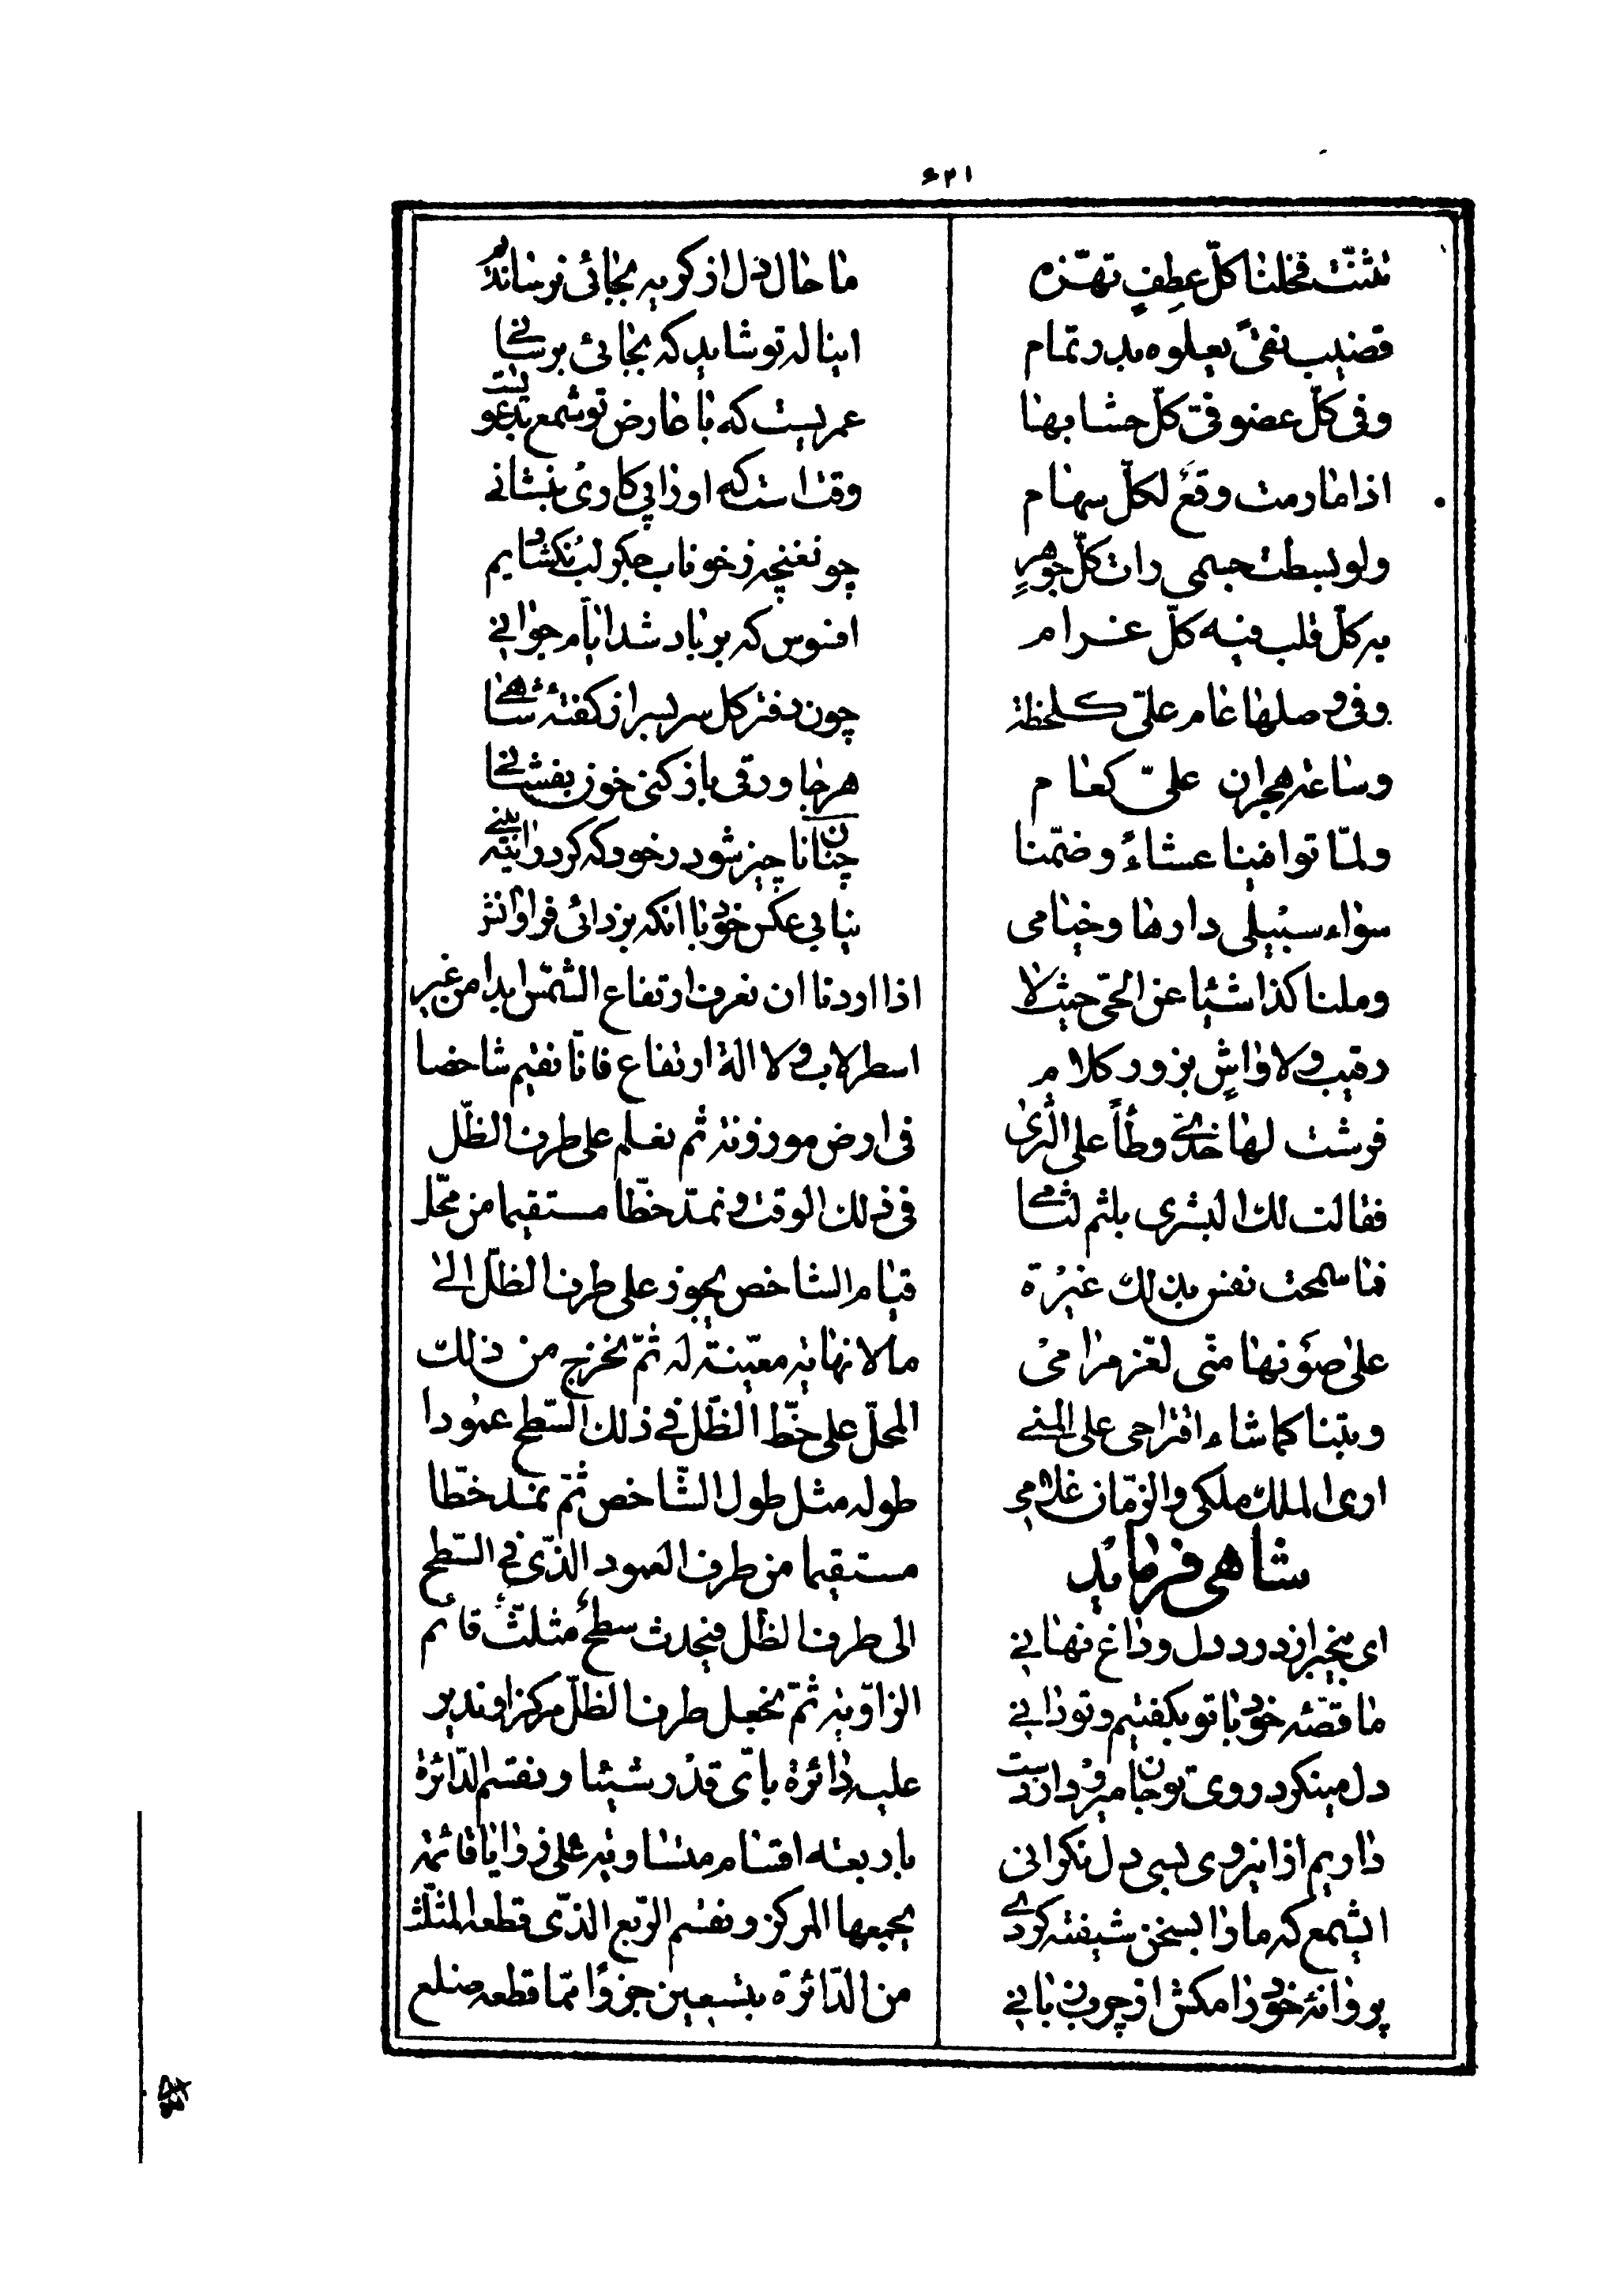 ۱۲۶
تثنّت فخلنا كلّ عطفٍ تهزّه
قضيب نقىً يعلوه بدر تمام
وفى كلّ عضو فىّ كلّ حشا بها
اذا ما رمت وقعٌ لكلّ سهام
ولو بسطت جسمى رات كلّ جوهرٍ
به كلّ قلب فيه كلّ غرام
وفى وصلها عام علىّ كلحظة
وساعة هجران علىّ كعام
ولمّا توافينا عشاءً وضمّنا
سواء سبيلى دارها وخيامى
وملنا كذا شيئا عن الحىّ حيث لا
رقيب ولا واشٍ بزور كلام
فرشت لها خدّى وطأً على الثرى
فقالت لك البشرى بلثم لثامى
فما سمحت نفسى بذلك غيرة
على صونها منّى لعز مرامى
وبتنا كما شاء اقتراحى على المنى
ارى الملك ملكى والزمان غلامى
شاهى فرمايد
اى بيخبر از درد دل و داغ نهانى
ما قصّه خود با تو بگفتيم و تو دانى
دل مينگرد روى تو جان ميرود از دست
داريم ازاينروى بسى دل نگرانى
ايشمع كه ما را بسخن شيفته كردى
پروانهٔ خود را مكش از چرب زبانى
ما حال دل از گريه بجائى نرسانديم
اينا له تو شايد كه بجائى برسانى
عمريست كه با عارض تو شمع بدعويست
وقت است كه او را پى كارى بنشانى
چون غنچه ز خوناب جگر لب نگشاديم
افسوس كه بر باد شد ايام جوانى
چون دفتر گل سر بسر از گفتهٔ شاهى
هر جا ورقى باز كنى خون بفشانى
چنان ناچيز شو در خود كه گرد رآينه بينى
نيابى عكس خود با آنكه بزدائى فراوانش
اذا اردنا ان نعرف ارتفاع الشمس ابدا من غير
اسطرلاب ولا آلة ارتفاع فانّا نقيم شاخصا
فى ارض موزونة ثم نعلم على طرف الظلّ
فى ذلك الوقت ونمدّ خطّا مستقيما من محلّ
قيام الشاخص يجوز على طرف الظلّ الى
مالا نهاية معيّنة له ثمّ نخرج من ذلك
المحلّ على خطّ الظل فى ذلك السّطح عمودا
طوله مثل طول الشّاخص ثمّ نمدّ خطّا
مستقيما من طرف العمود الذّى فى السّطح
الى طرف الظلّ فيحدث سطحٌ مثلّثٌ قائم
الزاوية ثمّ نجعل طرف الظلّ مركزا وندير
عليه دائرة باىّ قدر شيئنا ونقسم الدّائرة
باربعة اقسام متساوية على زوايا قائمة
يجمعها المركز ونقسم الرّبع الذّى قطعه المثلّث
من الدّائرة بتسعين جزوًا ممّا قطعه ضلع